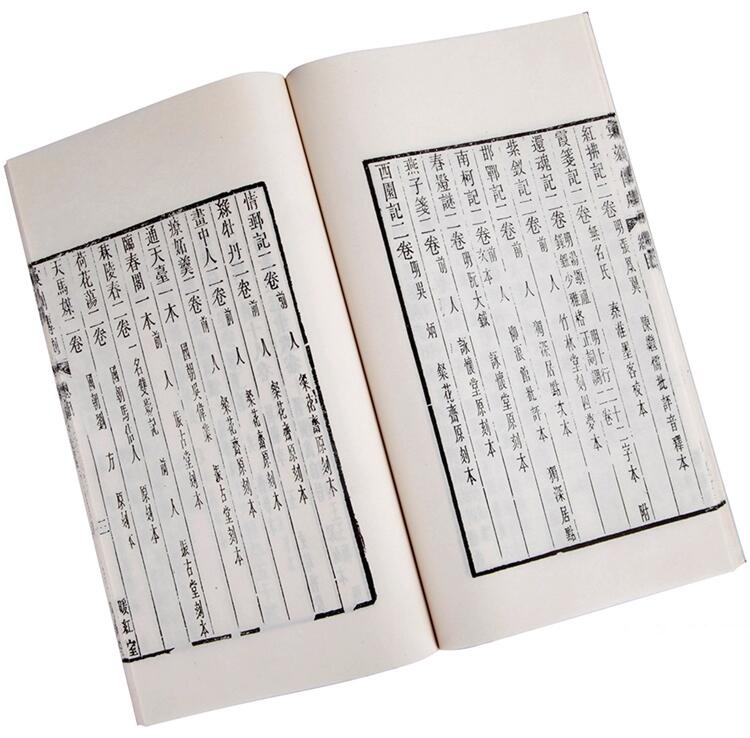 紅拂記二卷 明張鳳翼 陳繼儒批評音釋本
霞箋記二卷 無名氏 秦淮墨客校本
還魂記二卷 明湯顯祖 明十行二十二字本 附
鈕少雅格正詞調二卷 竹林堂刻四夢本 獨深居點
次本
紫釵記二卷 前人 獨深居點次本
邯鄲記二卷 前人 柳浪館批評本
南柯記二卷 前人
春燈謎二卷 明阮大鋮 詠懷堂原刻本
燕子箋二卷 前人 詠懷堂原刻本
西園記二卷 明吳炳 粲花齋原刻本
情郵記二卷 前人 粲花齋原刻本
綠牡丹二卷 前人 粲花齋原刻本
畫中人二卷 前人 粲花齋原刻本
療妬羹二卷 前人 粲花齋原刻本
通天臺一本 國朝吳偉業 振古堂刻本
臨春閣一本 前人 振古堂刻本
秣陵春二卷 一名雙影記 前人 振古堂刻本
荷花蕩二卷 國朝馬佶人 原刻本
天馬媒二卷 國朝劉方 原刻本
二 暖紅室